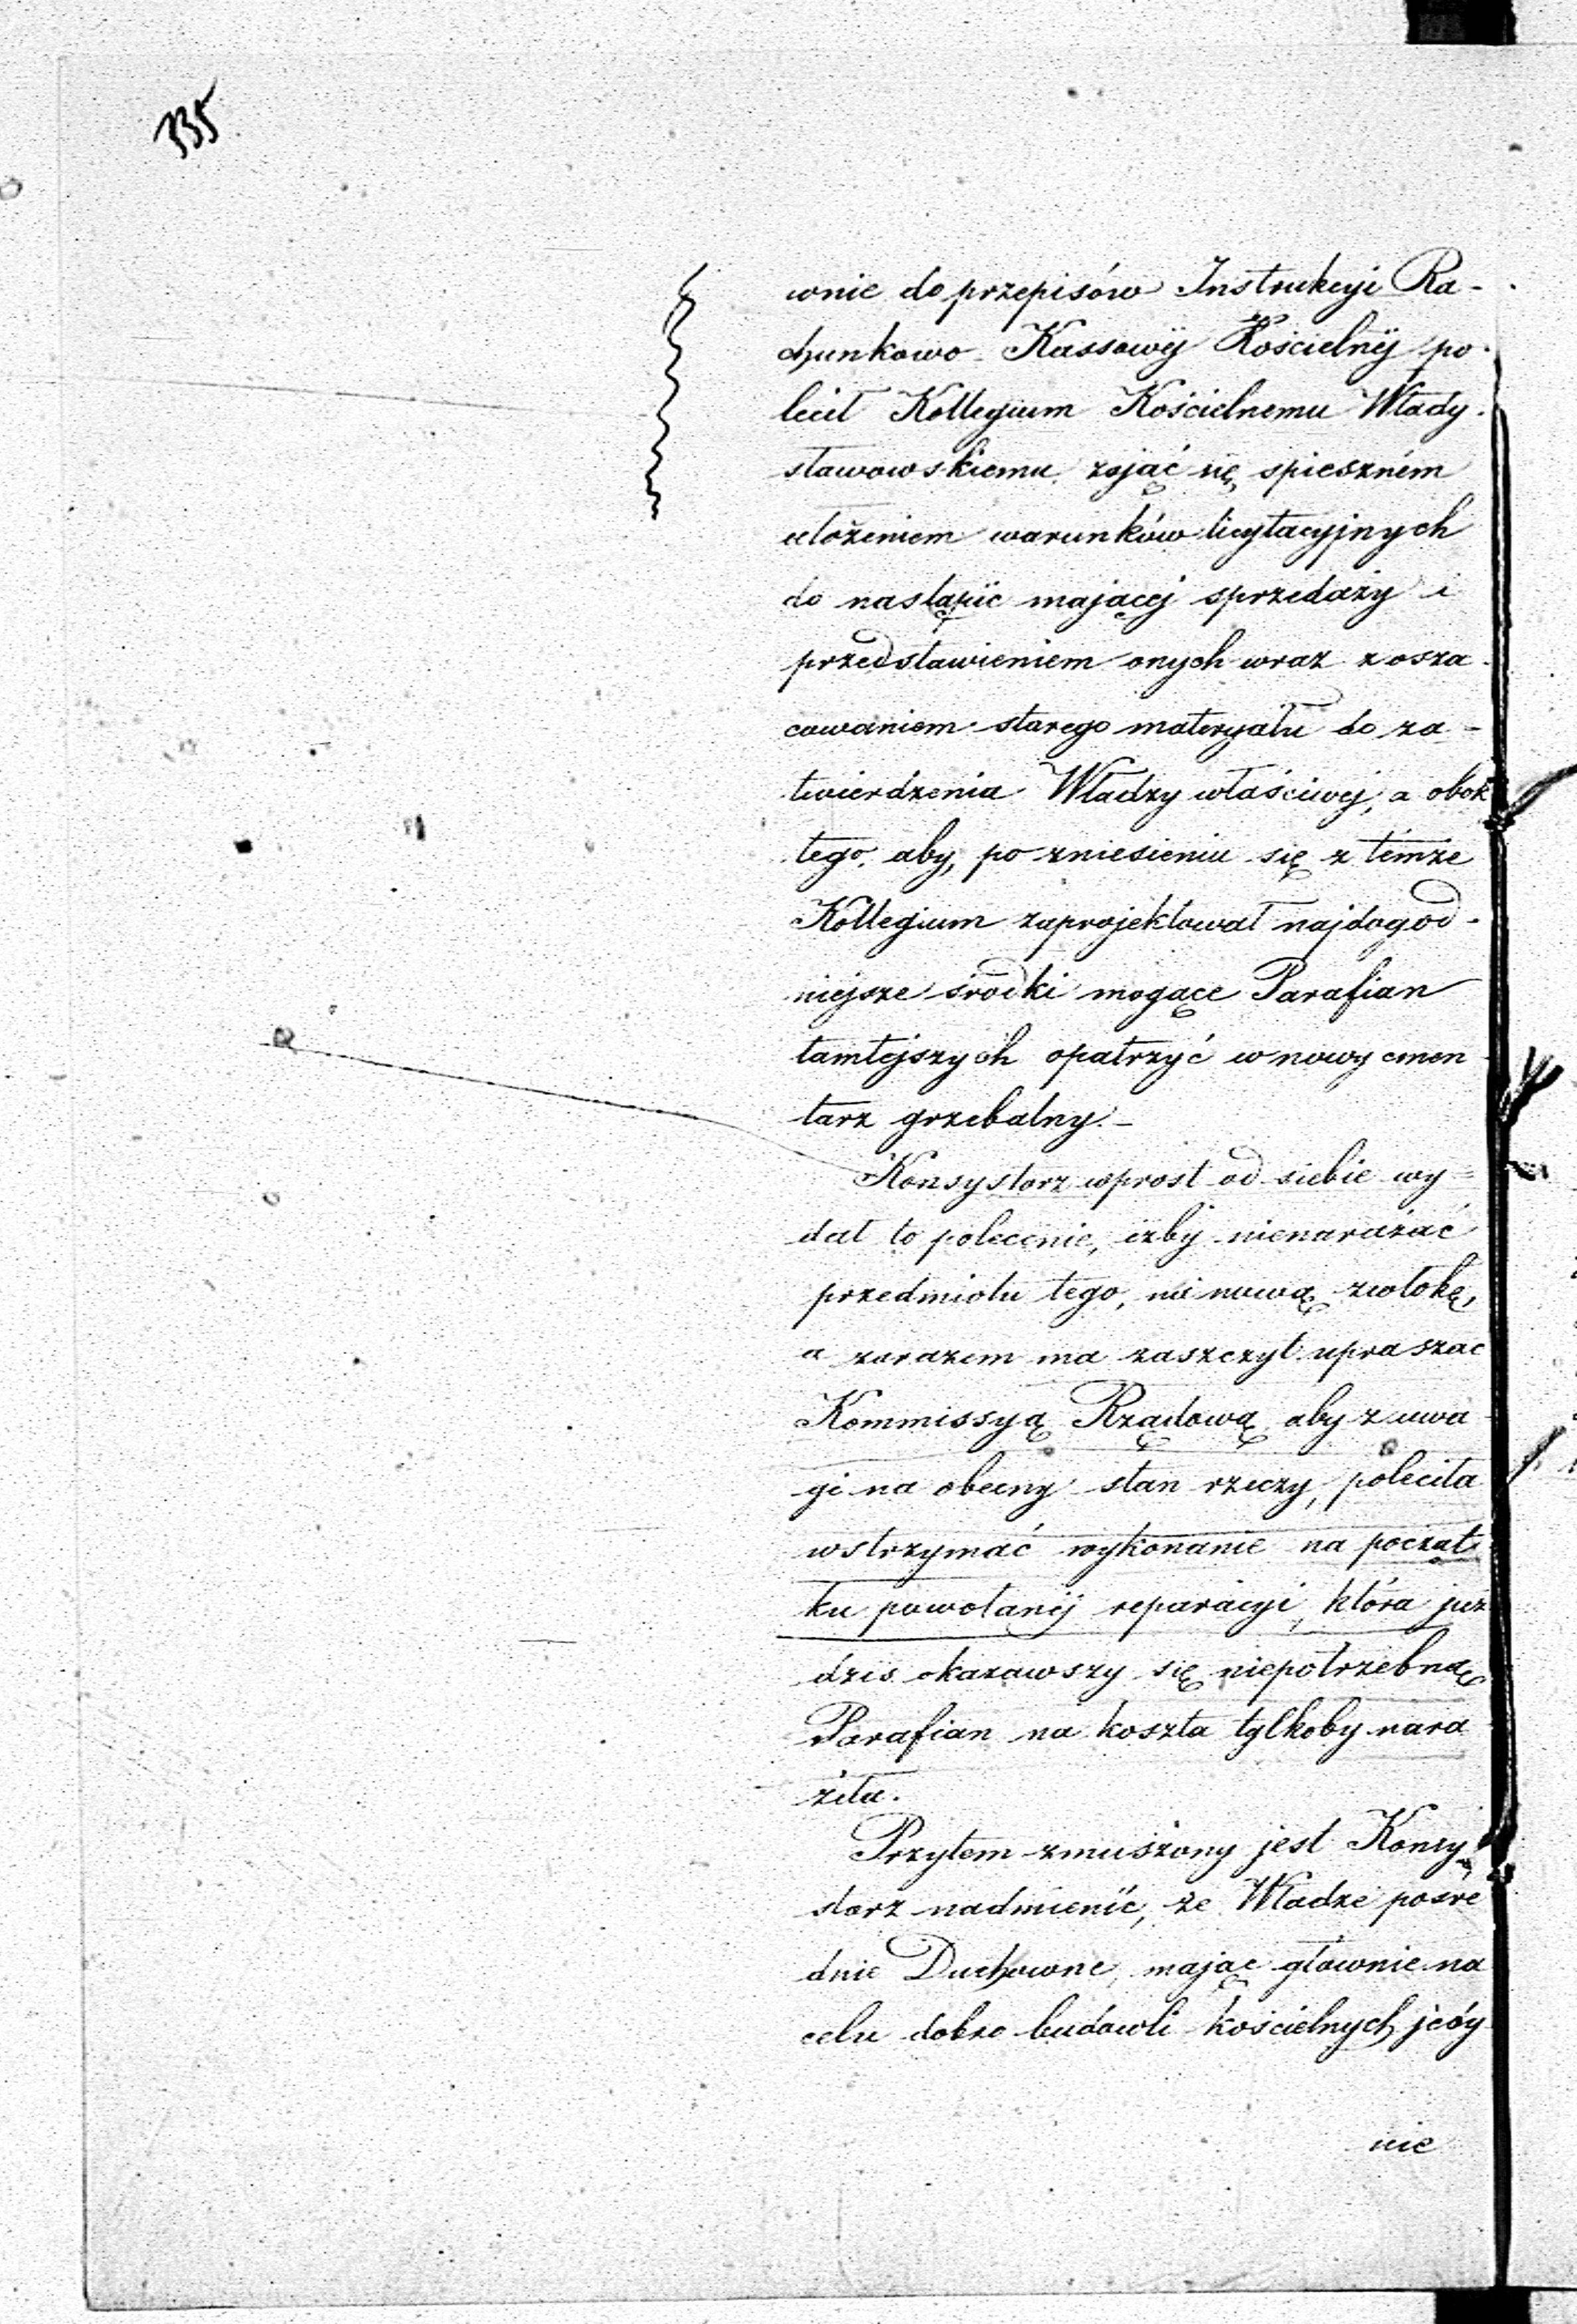 335
wnie do przepisów Instrukcyi Ra-
chunkowo-Kassowéj Kościelnéj po-
lecił Kollegium Kościelnemu Włady-
sławowskiemu, zająć się spieszném
ułożeniem warunków licytacyjnych
do nastąpić mającej sprzedaży i
przedstawieniem onych wraz z osza-
cowaniem starego materyału do za-
twierdzenia Władzy właściwej, a obok
tego, aby, po zniesieniu się z témże
Kollegium zaprojektował najdogod-
niejsze środki mogące Parafian
tamtejszych opatrzyć w nowy cmen
tarz grzebalny.-
Konsystorz wprost od siebie wy=
dał to polecenie, iżby nienarażać
przedmiotu tego, na nową zwłokę,
a zarazem ma zaszczyt upraszać
Kommissyą Rządową aby z uwa-
gi na obecny stan rzeczy, poleciła
wstrzymać wykonanie na począt
ku powołanéj reparacyi, która już
dziś okazawszy się niepotrzebną
Parafian na koszta tylkoby nara
żiła.
Przytem zmuszony jest Konsy
storz nadmienić, że Władze pośre
dnie Duchowne, mając głównie na
celu dobro budowli kościelnych
nie